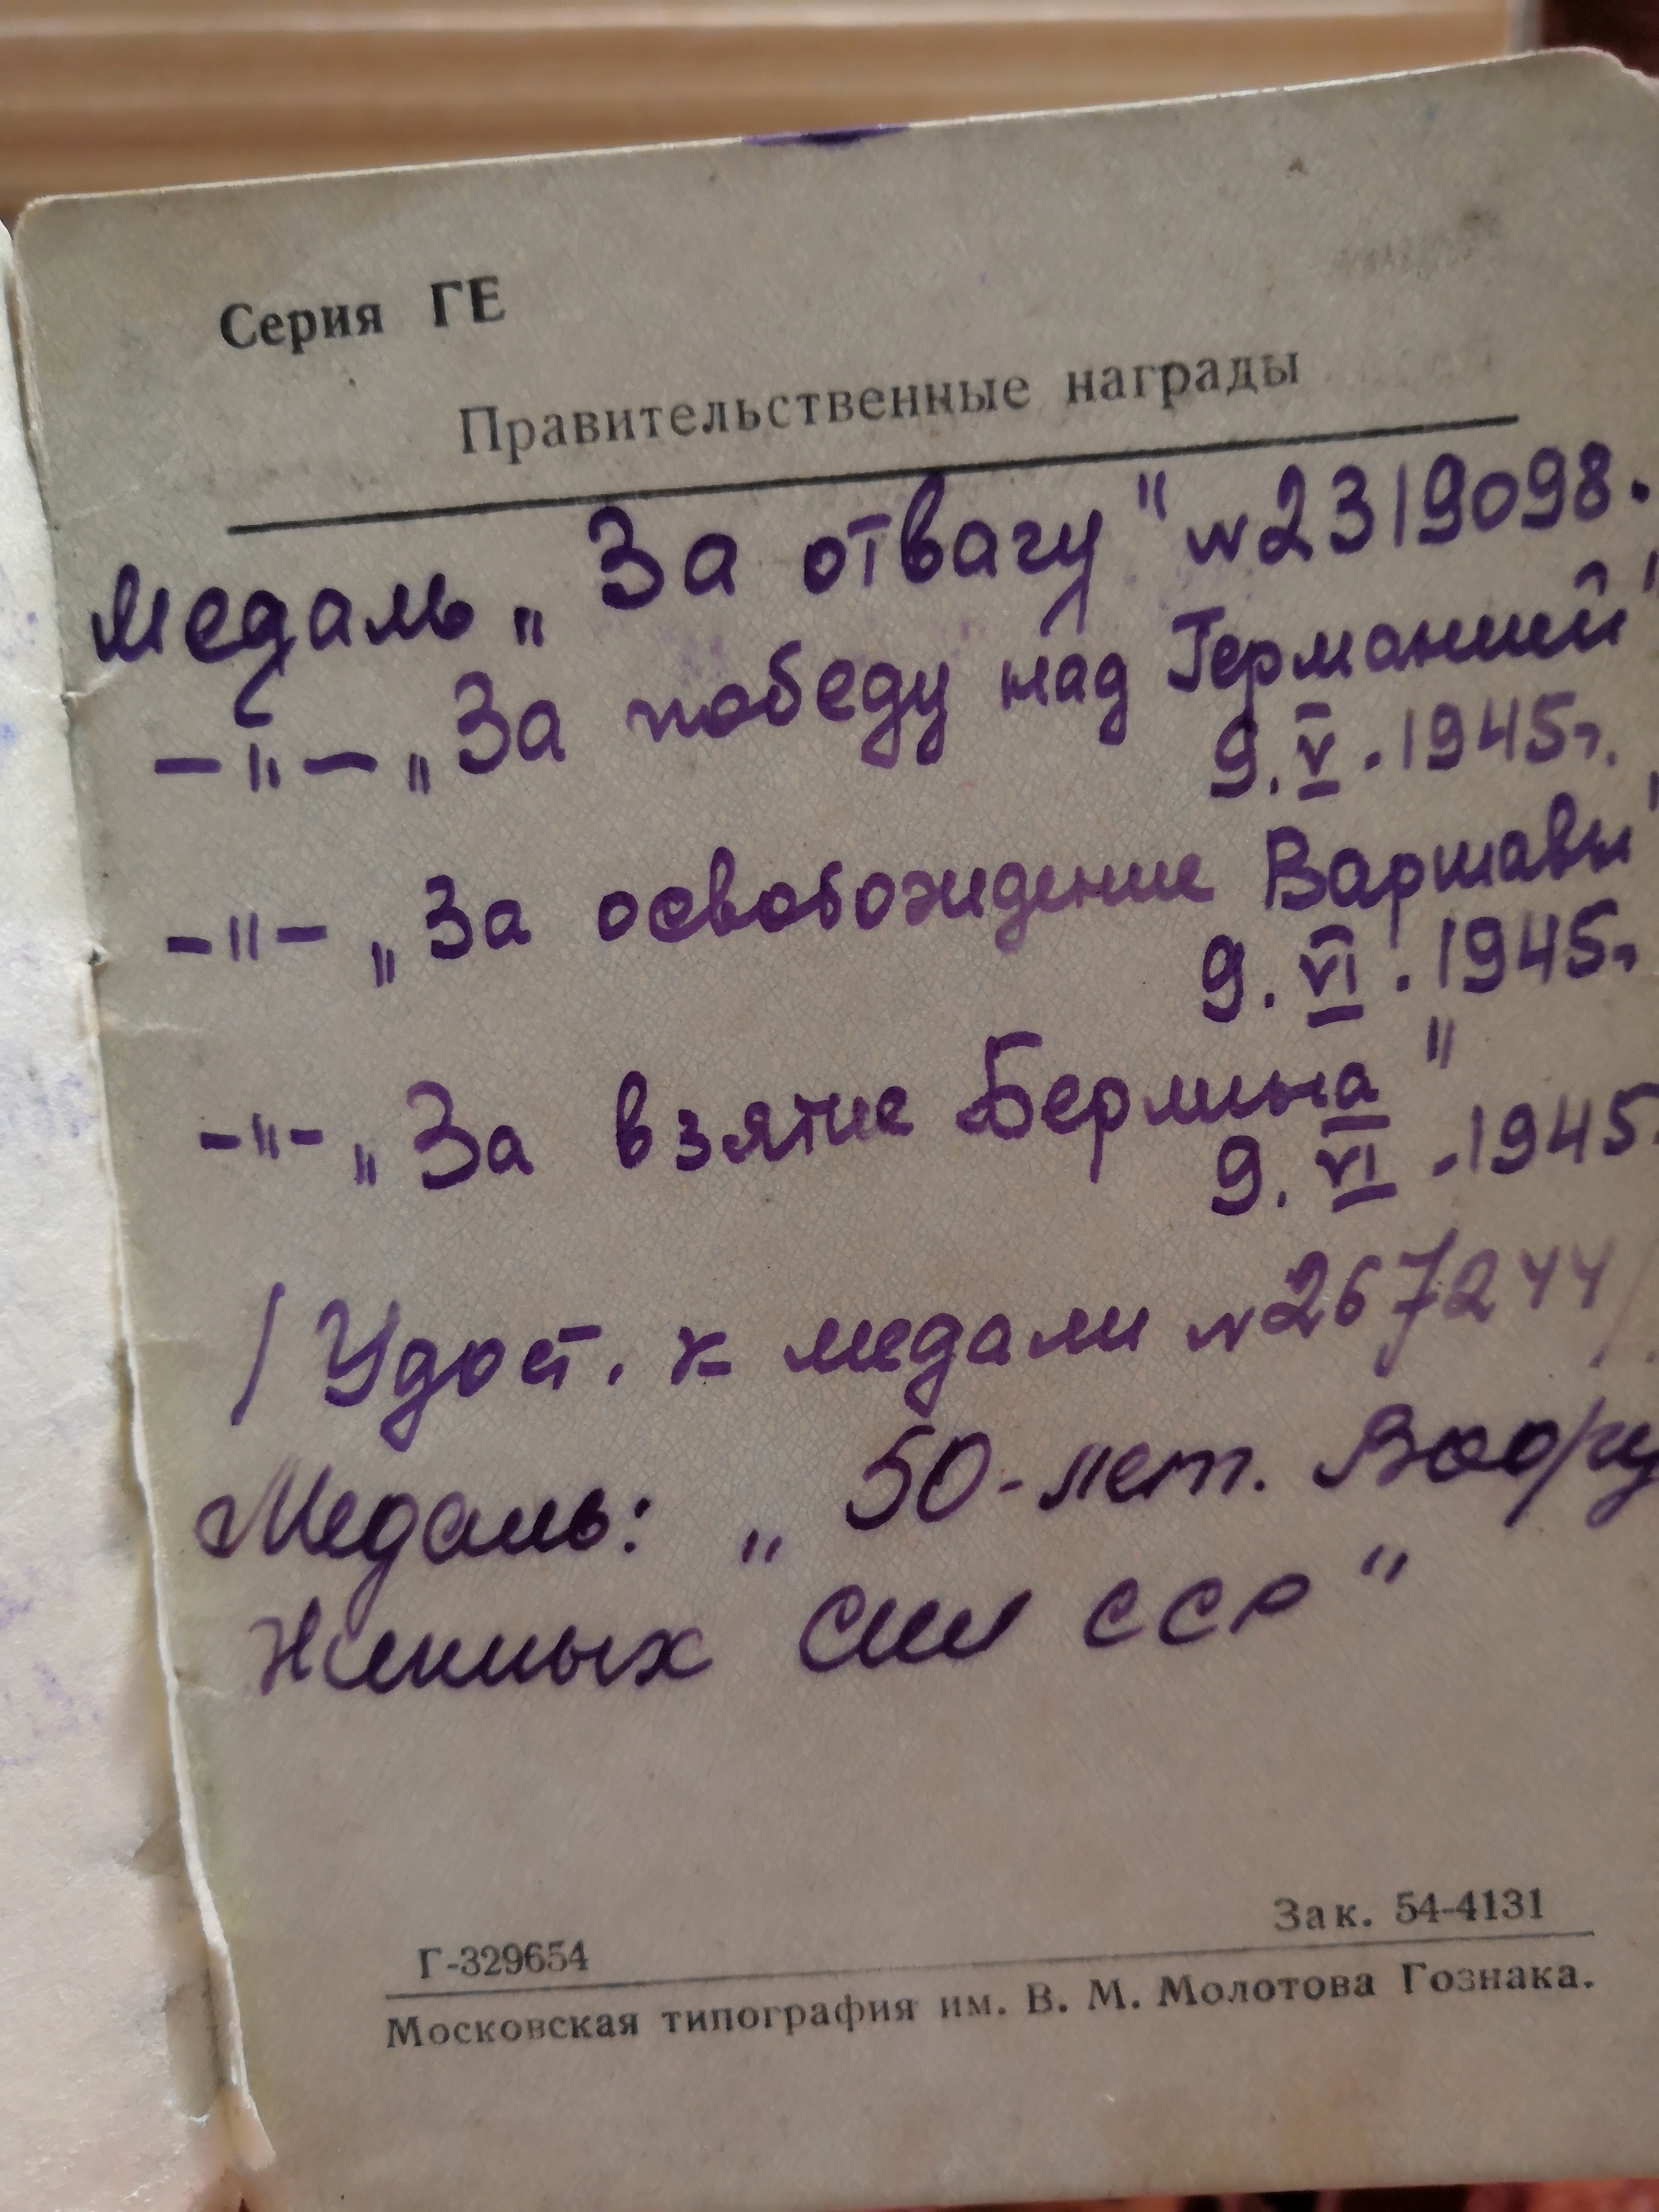 Серия ГЕ
Правительственные награды
Медаль „За отвагу" N2319098.
—"— „За победу над Германией"
9.V.1945г.
—"— „За освобождение Варшавы"
9.VI.1945г.
—"— „За взятие Берлина"
9.VI.1945
/Удост. к медали N267244/.
Медаль: „50-лет. Воору
женных Сил ССР"
Зак. 54-4131
Г-329654
Московская типография им. В. М. Молотова Гознака.